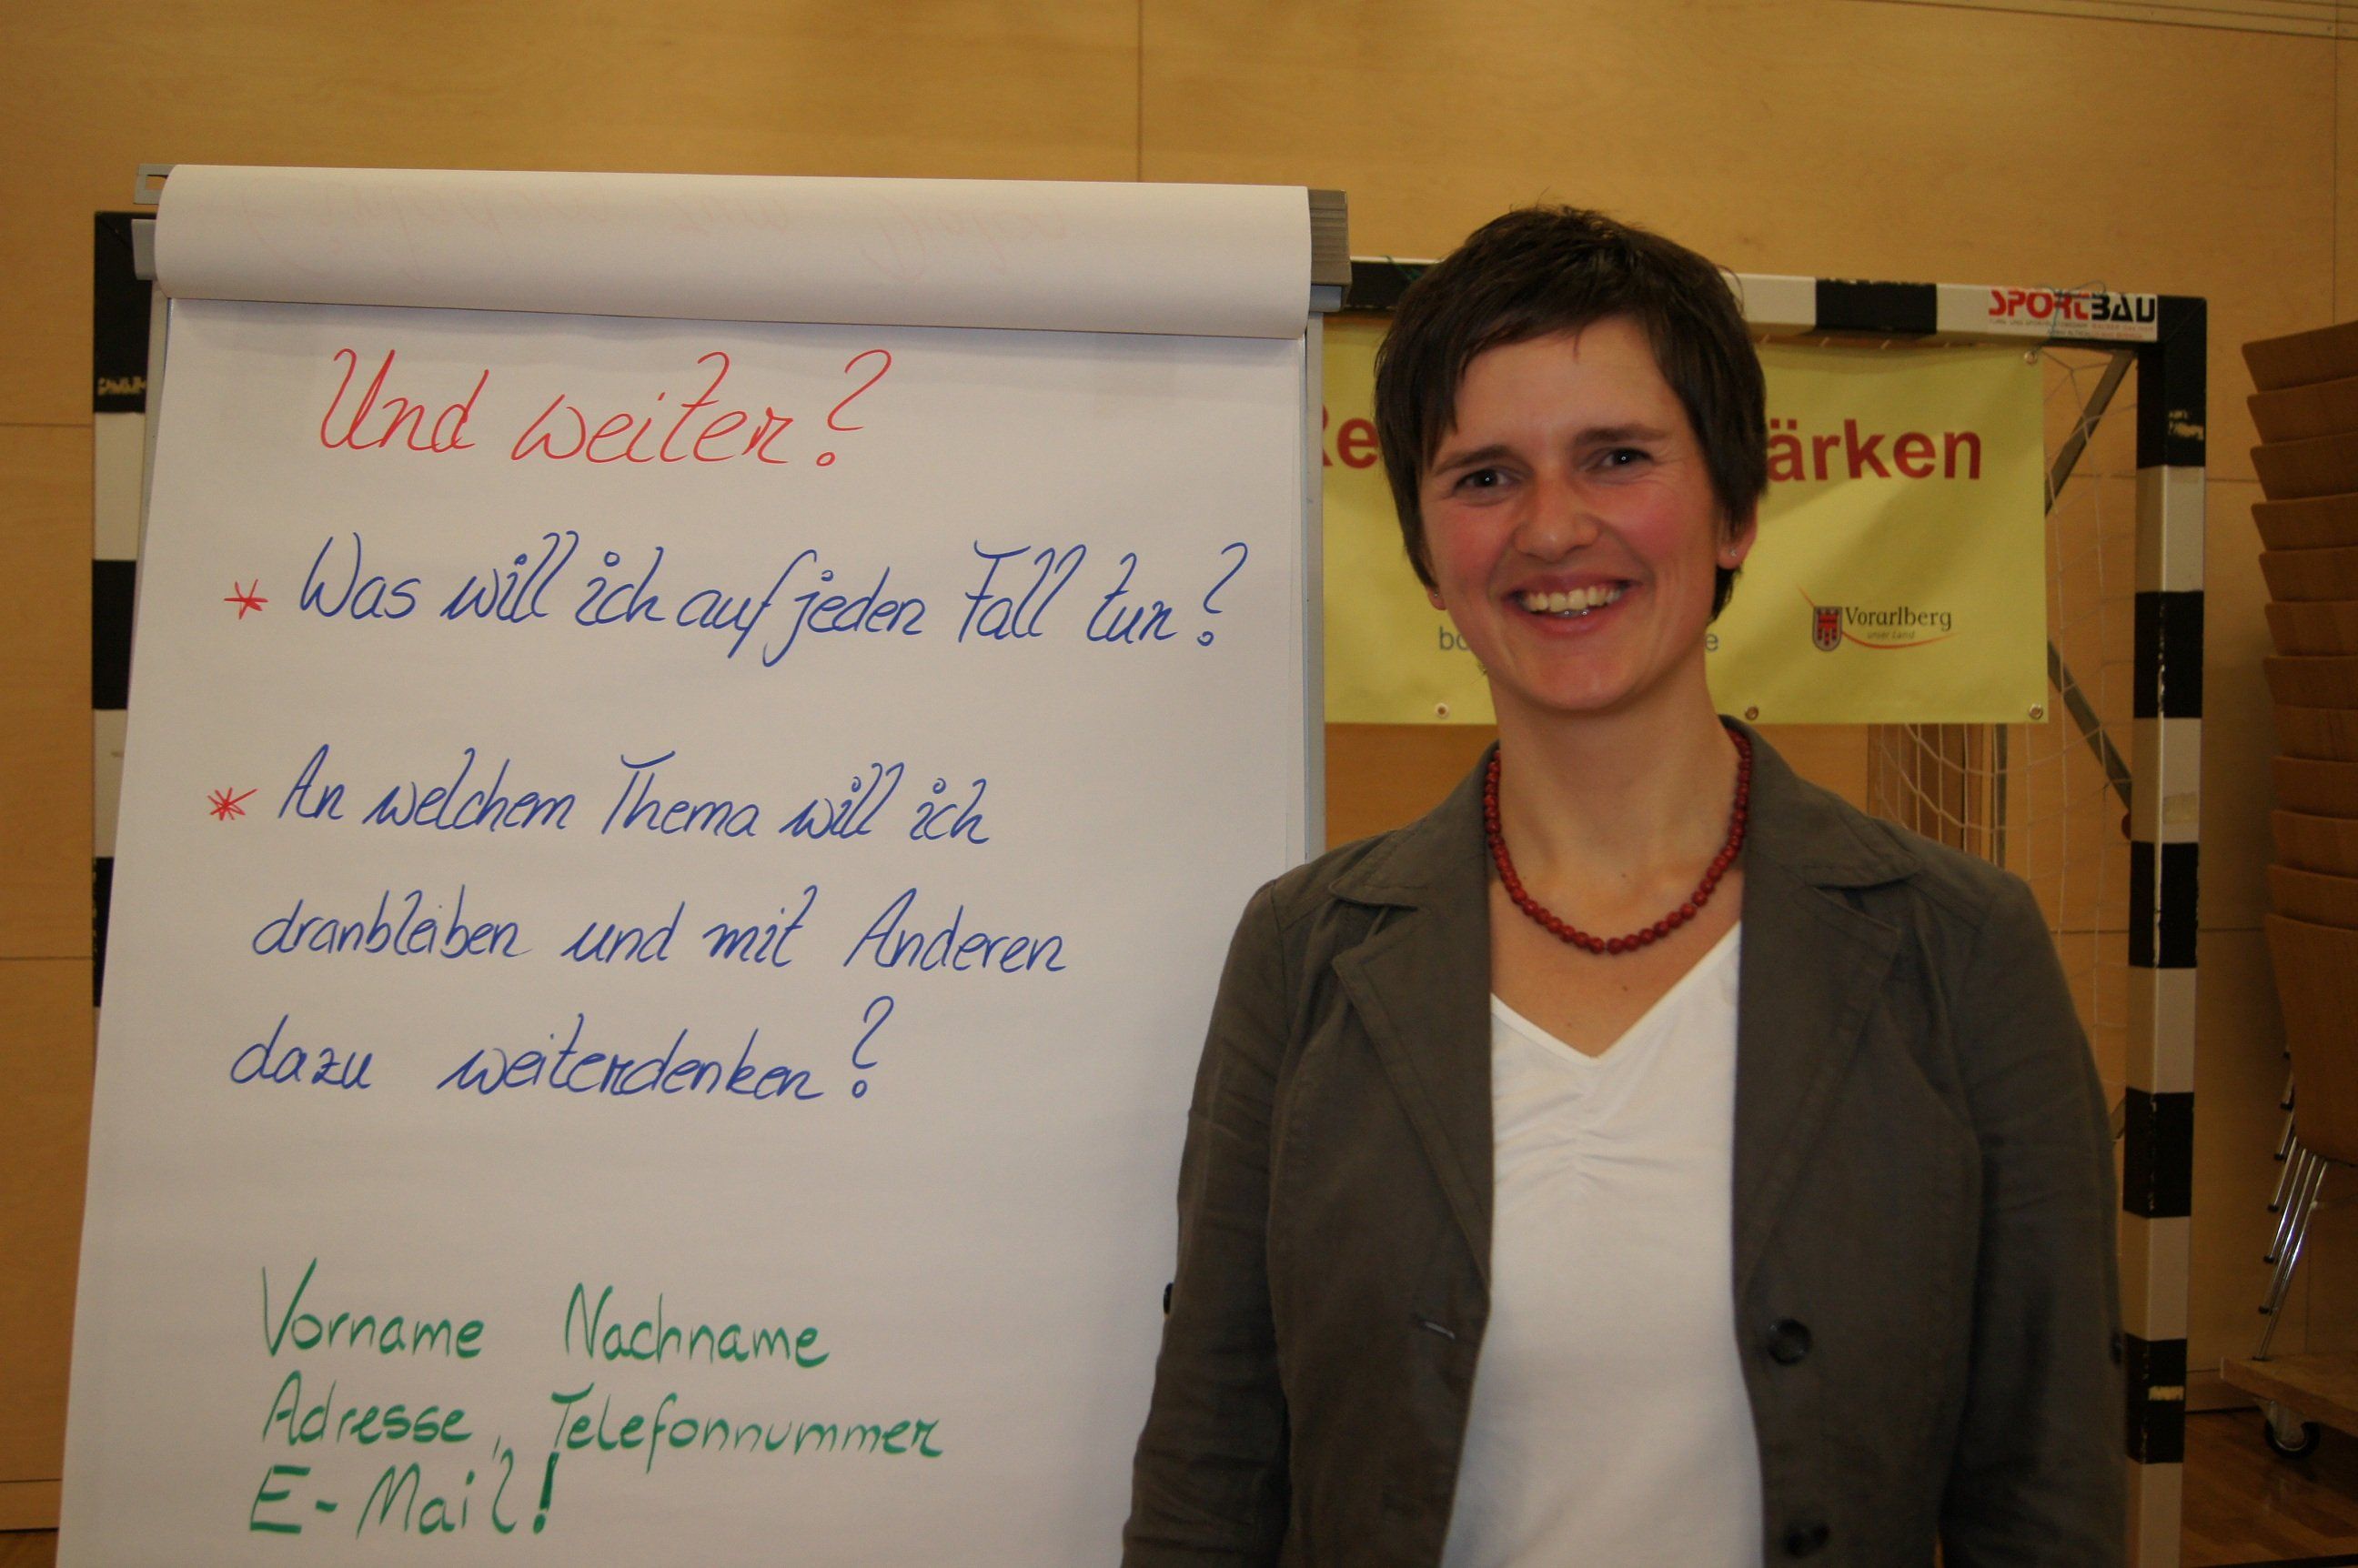 Und weiter?
* Was will ich auf jeden Fall tun?
* An welchem Thema will ich
dranbleiben und mit Anderen
dazu weiterdenken?
Vorname Nachname
Adresse, Telefonnummer
E-Mail!
SPORTBAU
Re ärken
Vorarlberg
unser Land